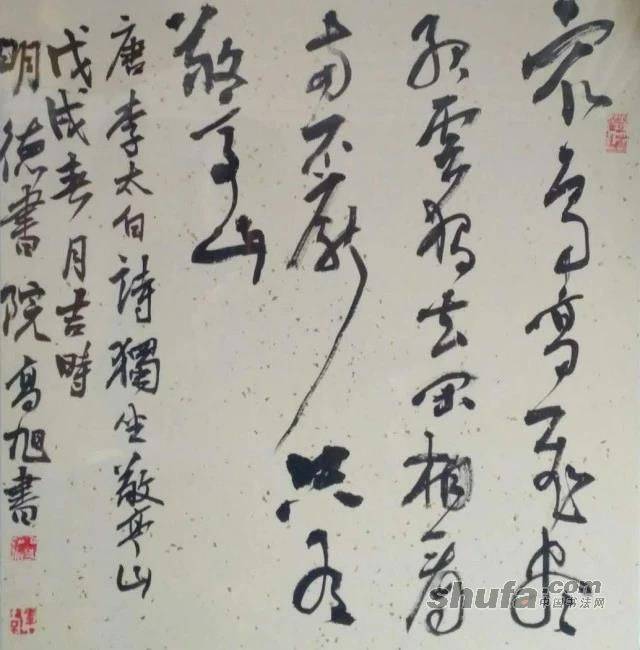 眾鳥高飛盡
孤雲獨去閑相看
兩不厭只有
敬亭山
唐李太白詩獨坐敬亭山
戊戌春月吉時
明德書院高旭書
shufa.com
中国书法网